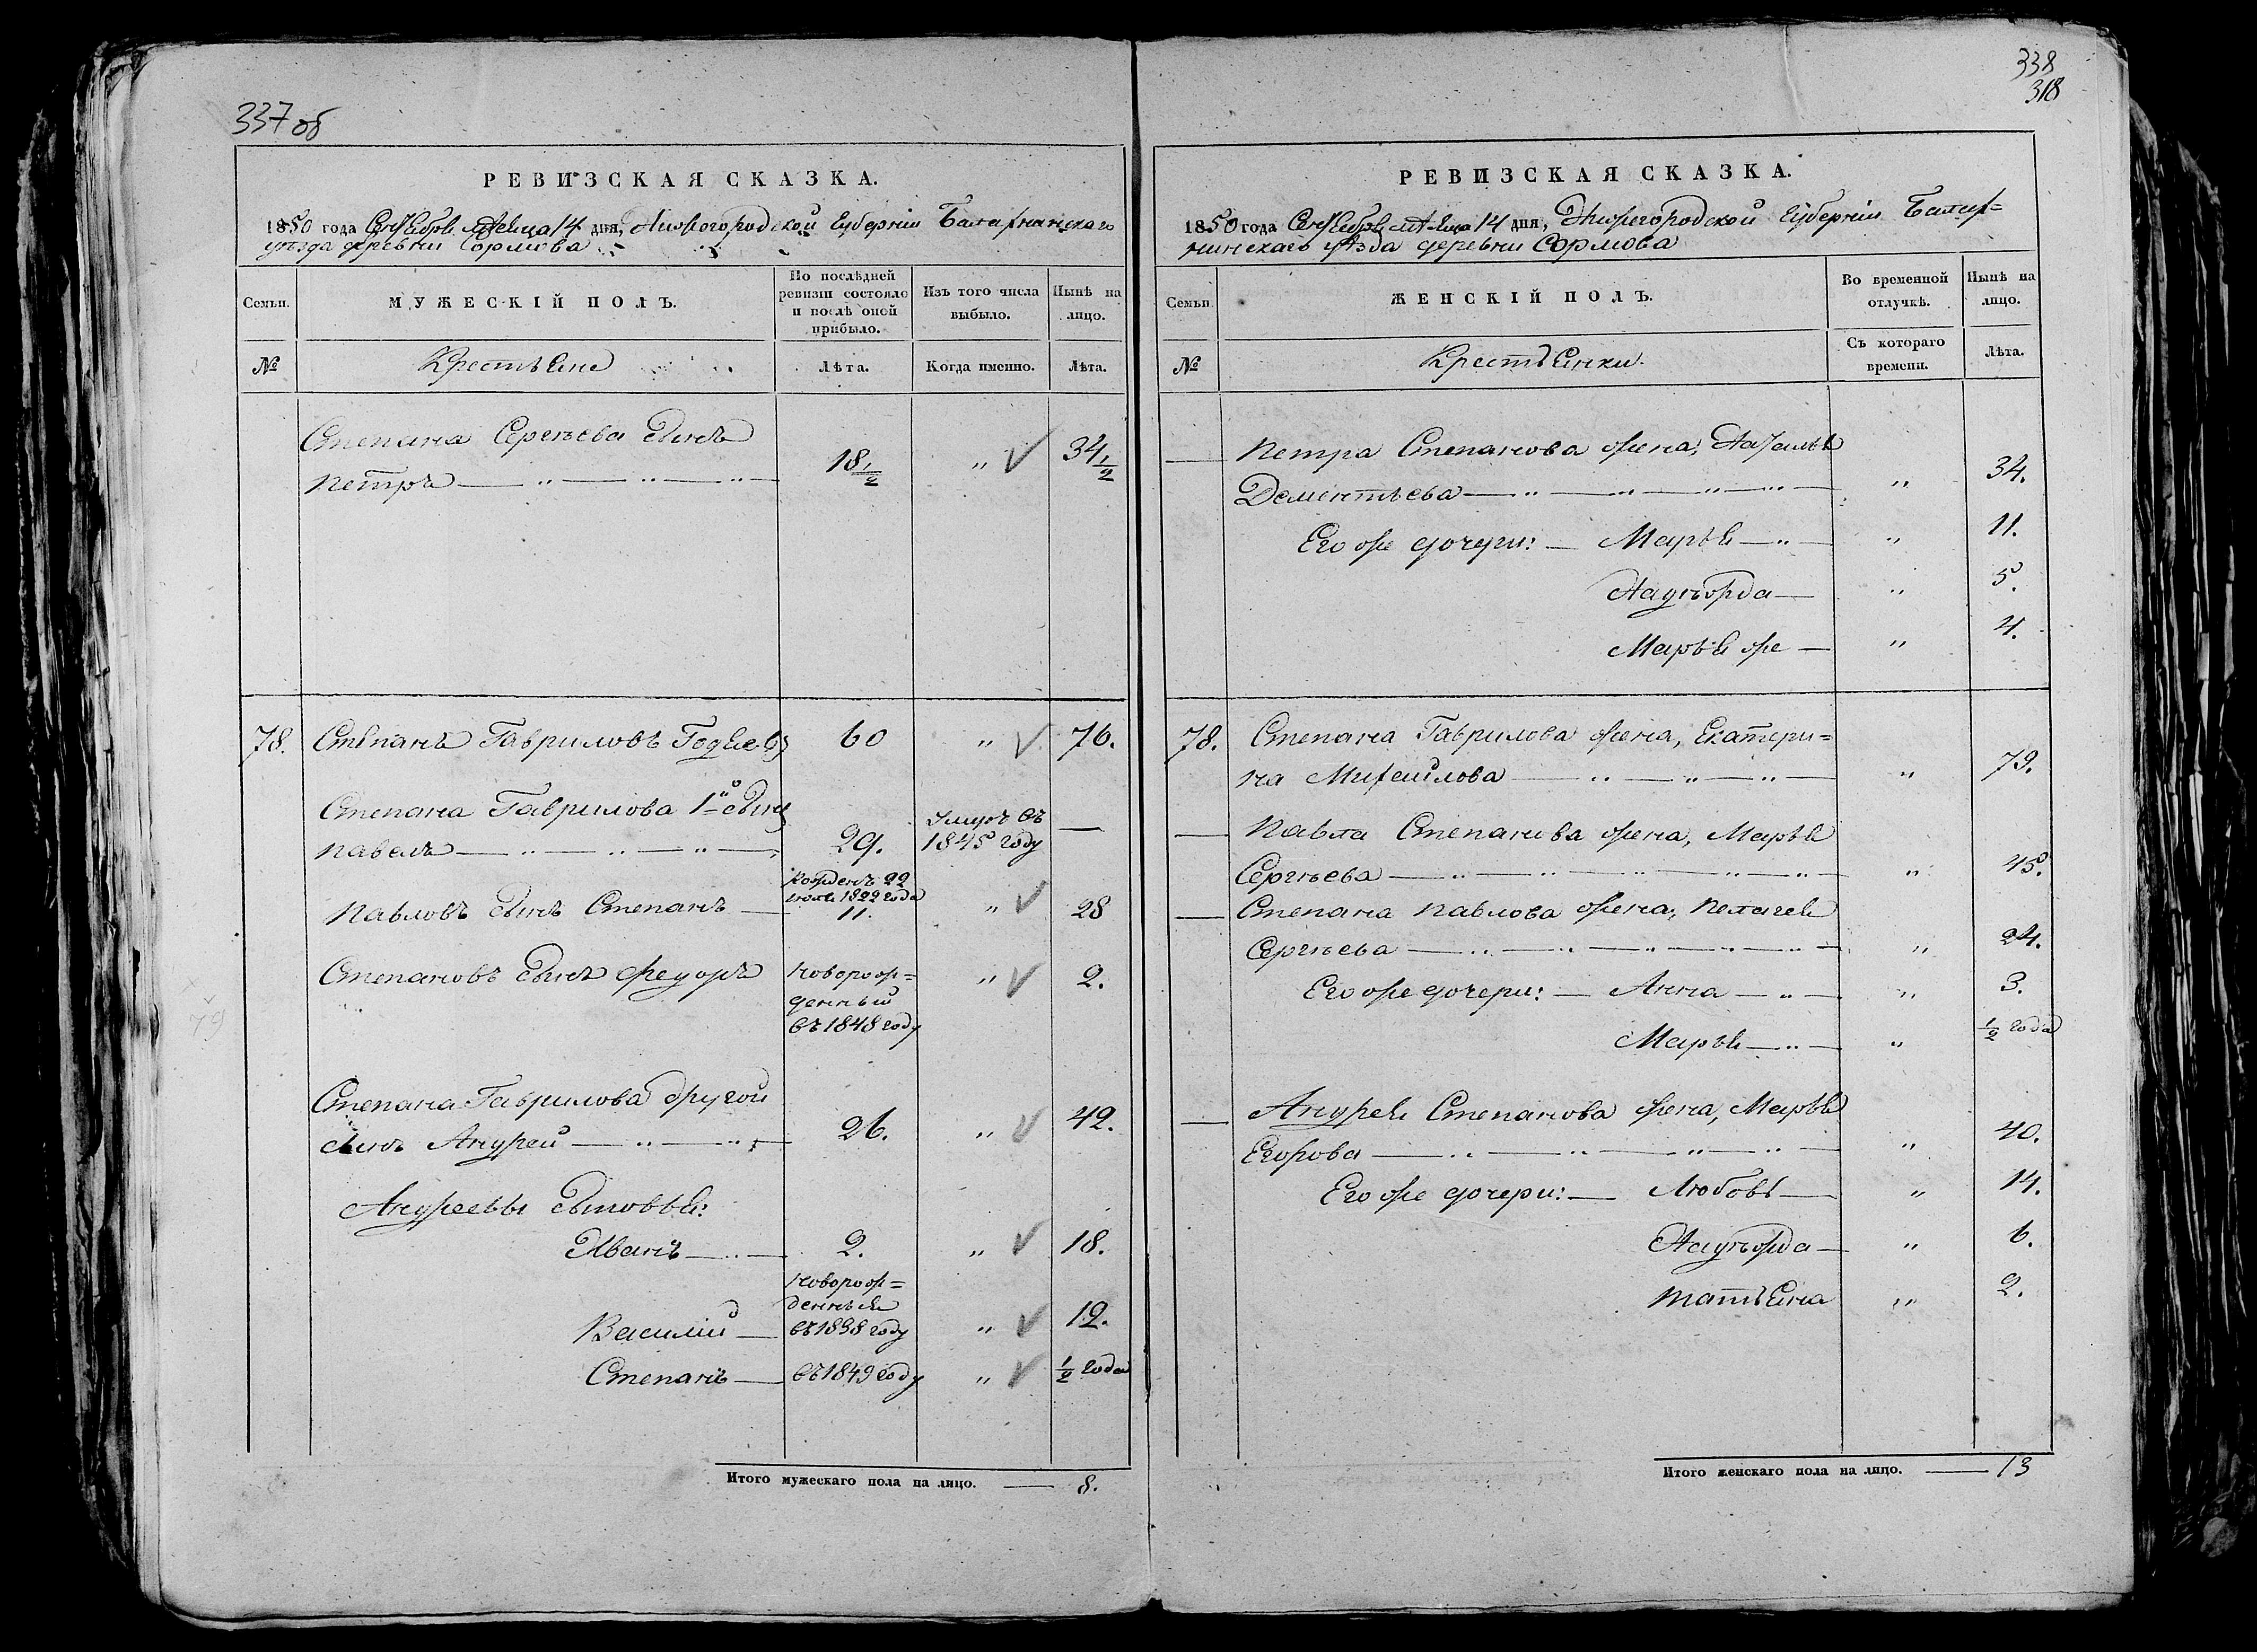 337 об
РЕВИЗСКАЯ СКАЗКА.
1850 года Октября месяца 14 дня, Нижегородской Губернiи Балахнинскаго
уѣзда деревни Сормова
Семьи.
МУЖЕСКІЙ ПОЛЪ.
По послѣдней ревизіи состояло и послѣ оной прибыло.
Изъ того числа выбыло.
Нынѣ на лицо.
№
Крестьяне
Лѣта.
Когда именно.
Лѣта.
Степана Сергѣева сынъ
Петръ — 18 1/2 " 34 1/2
78. Степанъ Гавриловъ 60 " 76.
Степана Гаврилова 1й сынъ
Павелъ — 29. Умеръ въ 1845 году —
Павловъ сынъ Степанъ — рожденъ 22 1822 года 11. " 28
Степановъ сынъ Федоръ новорож=
денный
въ 1848 году " 2.
Степана Гаврилова другой
сынъ Андрей — 26. " 42.
Андреевы сыновья:
Иванъ — 2. " 18.
новорож=
денные
Василій — въ 1838 году " 12.
Степанъ — въ 1849 году " 1/2 года
Итого мужескаго пола на лицо. — 8.
338
318
РЕВИЗСКАЯ СКАЗКА.
1850 года Октября м-ца 14 дня, Нижегородской Губерніи Балах=
нинскаго уѣзда деревни Сормова
Семьи.
ЖЕНСКІЙ ПОЛЪ.
Во временной отлучкѣ.
Нынѣ на лицо.
№
Крестьянки.
Съ котораго времени.
Лѣта.
— Петра Степанова жена, Наталья
Дементьева — " 34.
Его же дочери: — Марья — " 11.
Надѣжда — " 5.
Марья же — " 4.
78. Степана Гаврилова жена, Екатери=
на Михайлова — " 79.
— Павла Степанова жена, Марья
Сергѣева — " 45.
— Степана Павлова жена, Пелагея
Сергѣева — " 24.
Его же дочери: — Анна — " 3.
Марья — " 1/2 года
— Андрея Степанова жена, Марья
Егорова — " 40.
Его же дочери: — Любовь — " 14.
Надѣжда — " 6.
Татьяна " 2.
Итого женскаго пола на лицо. — 13